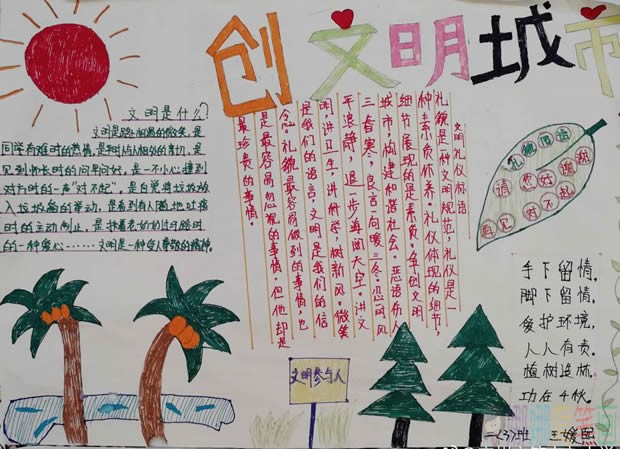 创文明城市
文明是什么?
文明是路相遇的微笑,是
同学有难时的热情,是平时与人相处的亲切,是
见到师长时的问早问好,是一不小心撞到
对方时的一声“对不起”,是自觉将垃圾放
入垃圾箱的举动,是看到有人随地吐痰
时的主动制止,是扶着老奶奶过马路时
的一种爱心……文明是一种受人尊敬的精神。
文明礼仪标语
礼貌是一种文明规范,礼仪是一
种素质修养。礼仪体现的细节,
细节展现的是素质。争创文明
城市,构建和谐社会。恶语伤人
三春寒,良言向暖三冬。忍一时风
平浪静,退一步海阔天空。讲文
明,讲卫生,讲科学,树新风。微笑
是我们的语言,文明是我们的信
念。礼貌最容易做到的事情,也
是最容易忽视的事情,但他却是
最珍贵的事情。
礼貌用语
请 您好 谢谢
再见 对不起
手下留情,
脚下留情,
爱护环境,
人人有责。
植树造林,
功在千秋。
文明参与人
二(3)班